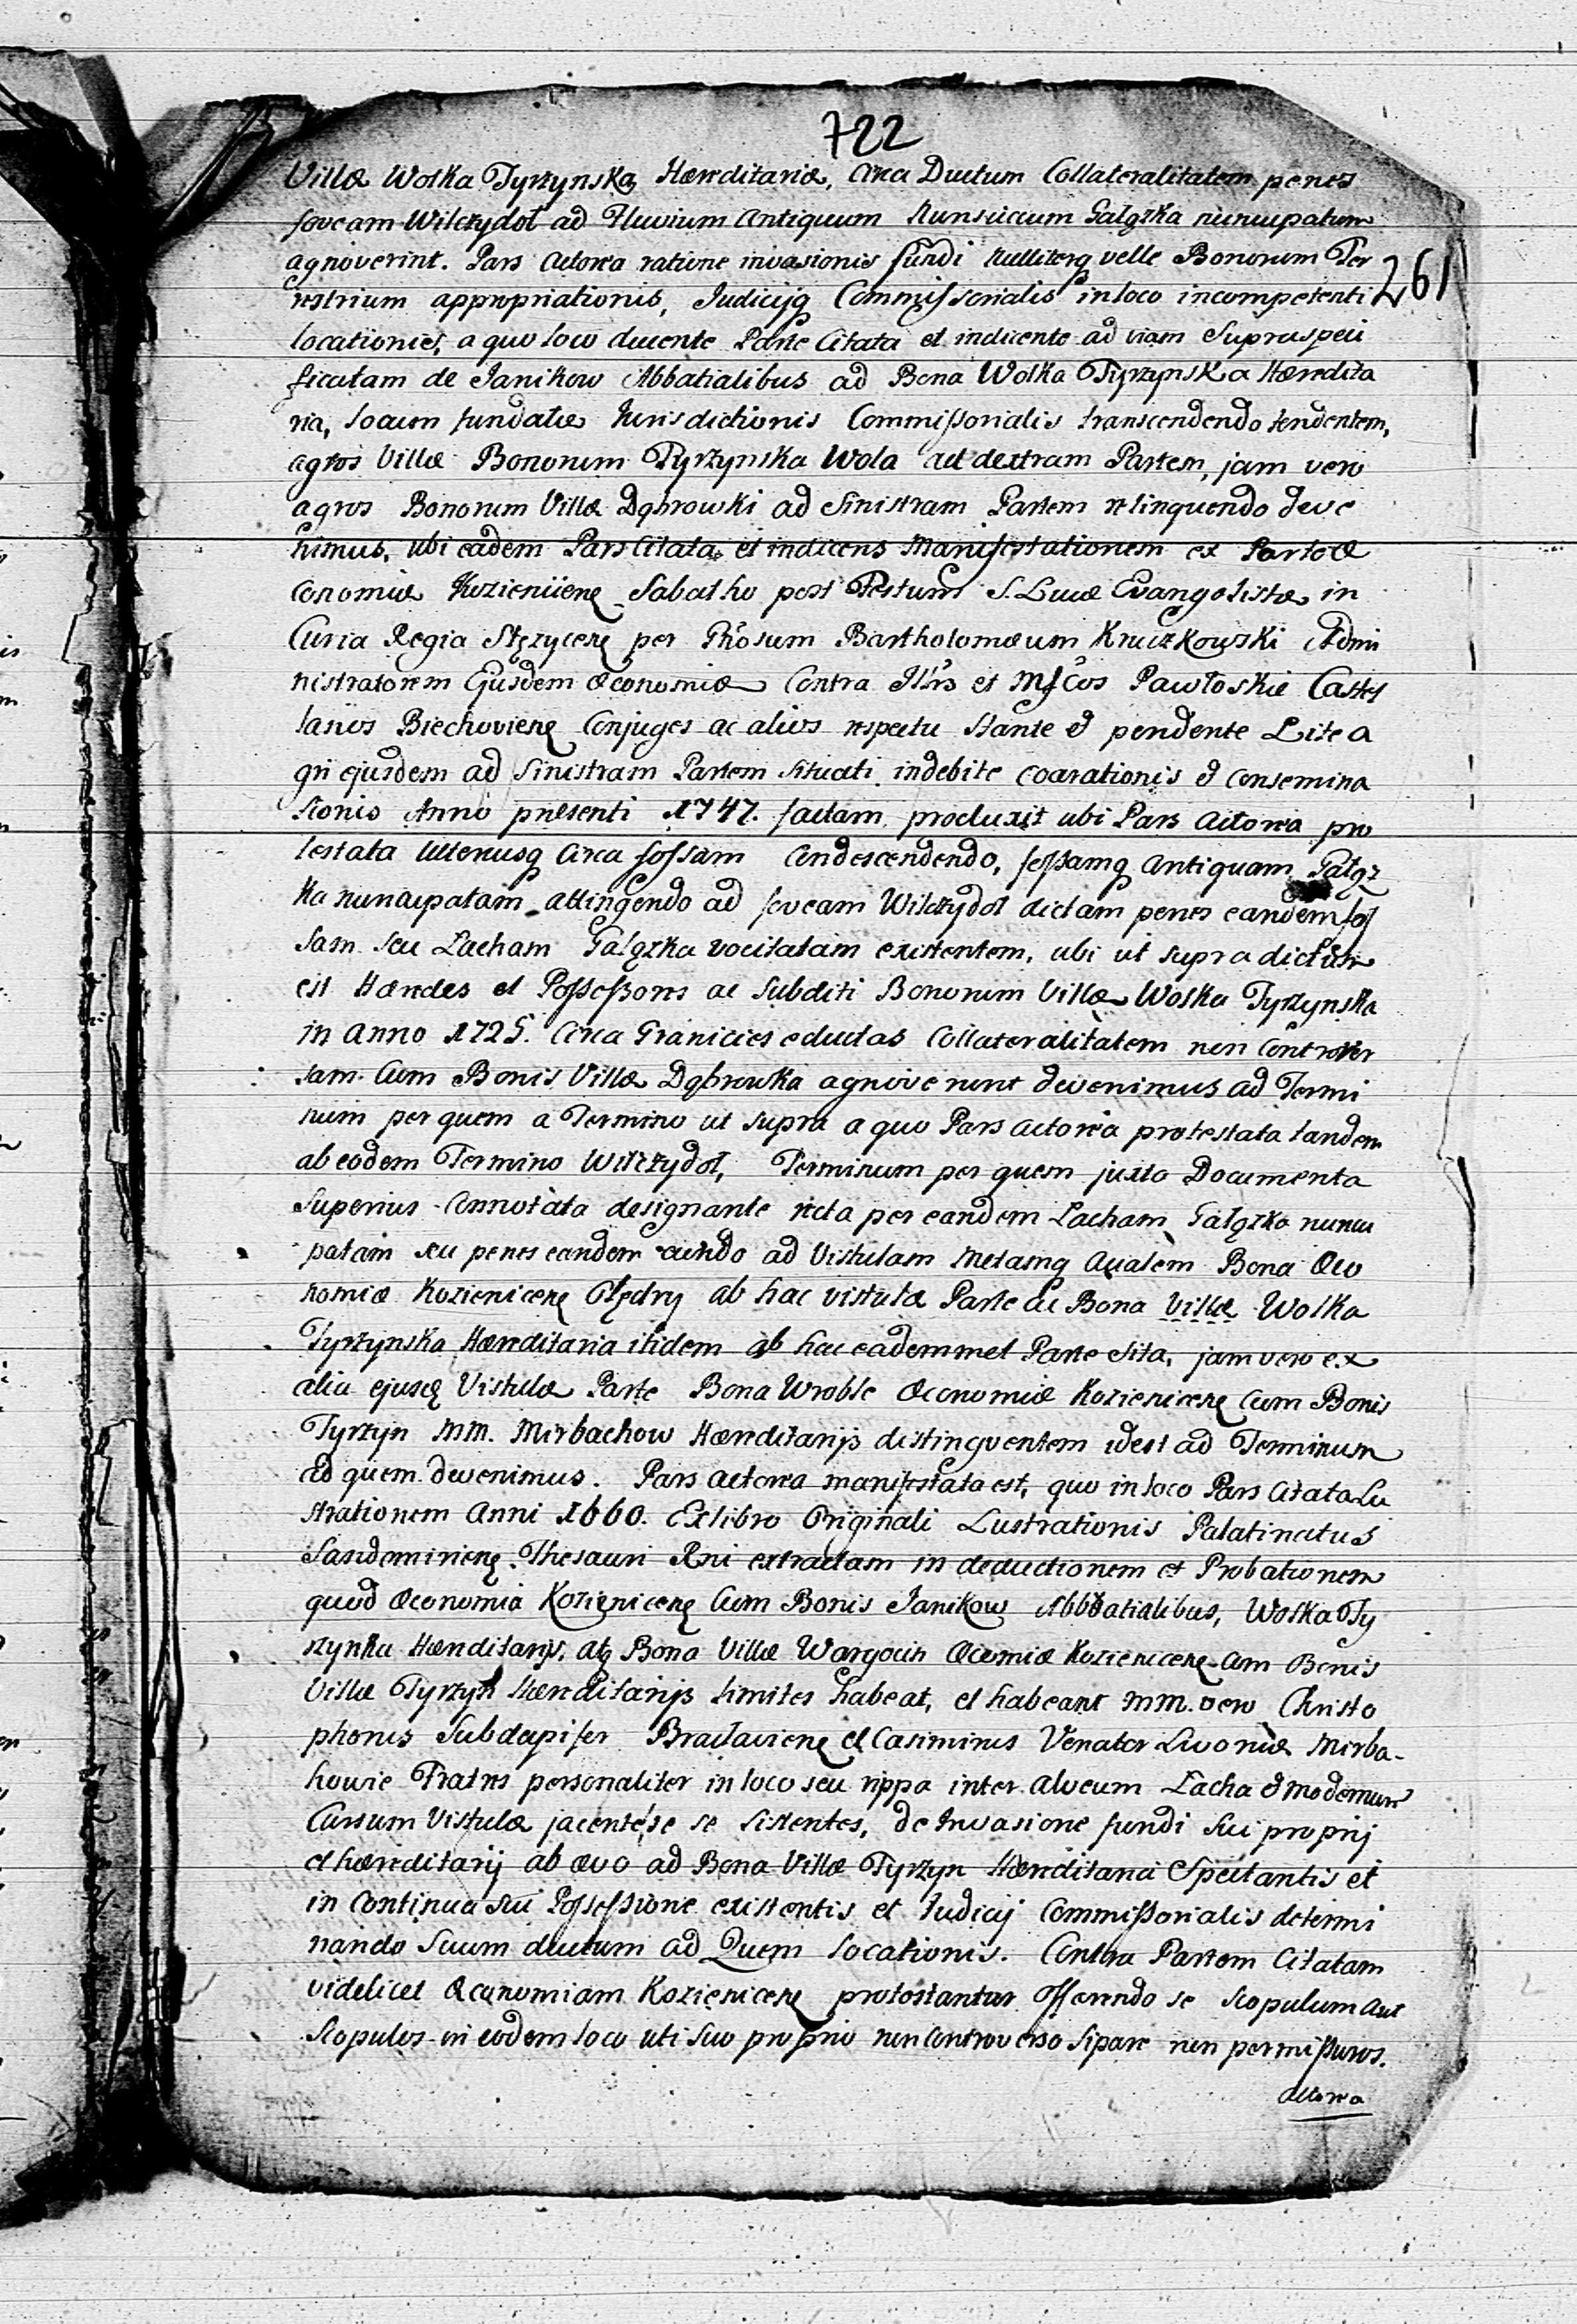 722
Villæ Wolka Tyrzynska Hæreditariæ, circa Ductum Collateralitatem penes
foveam Wilczydoł ad Fluvium Antiquum Nunc siccum Gałęzka nuncupatum
agnoverint. Pars Actorea ratione invasionis fundi nulliterq velle Bonorum Ter
261
restrium appropriationis, Judicijq Commissorialis in loco incompetenti
locationis, a quo loco ducente Parte Citata et indicente ad viam Supraspeci
ficatam de Janikow Abbatialibus ad Bona Wolka Tyrzynska Hæredita
ria, locum fundatæ Jurisdictionis Commissorialis transcendendo tendentem,
agros Villæ Bonorum Tyrzynska Wola ad dextram Partem, jam vero
agros Bonorum Villæ Dąbrowki ad Sinistram Partem relinquendo deve
nimus, ubi eadem Pars Citata et indicens Manifestationem ex Parte Œ
conomiæ Kozieniicenę Sabatho post Festum S. Lucæ Evangelistæ in
Curia Regia Stęzycenę per Gnosum Bartholomæum Kruczkowski Admi
nistratorem Ejusdem Œconomiæ Contra Illrs et Mfcos Pawłoskie Castel
lanos Biechovienę Conjuges ac alios respectu stante & pendente Lite a
gri ejusdem ad Sinistram Partem Situati indebite coarationis & consemina
tionis Anno præsenti 1747. factam produxit ubi Pars Actorea pro
testata Ulteriusq circa fossam Condescendendo, fossamq Antiquam Gałęz
ka nuncupatam attingendo ad foveam Wilczydoł dictam penes eandem fos
sam seu Lacham Gałęzka vocitatam existentem, ubi ut supra dictum
est Hæredes et Possessores ac Subditi Bonorum Villæ Wolka Tyrzynska
in Anno 1725. Circa Granicies eductas Collateralitatem non Controver
sam Cum Bonis Villæ Dąbrowka agnoverunt devenimus ad Termi
num per quem a Termino ut supra a quo Pars Actorea protestata tandem
ab eodem Termino Wilczydoł, Terminum per quem juxta Documenta
Superius Connotata designante recta per eandem Lacham Gałęzka nuncu
patam seu penes eandem eundo ad Vistulam Metamq Aqualem Bona Œco
nomiæ Kozienicenę Olędry ab hac vistulæ Parte ac Bona Villæ Wolka
Tyrzynska Hæreditaria itidem ab hac eademmet Parte Sita, jam vero ex
alia ejusdę Vistulæ Parte Bona Wroble Œconomiæ Kozienicenę Cum Bonis
Tyrzyn MM. Mirbachow Hæreditarijs distinguentem idest ad Terminum
ad quem devenimus. Pars Actorea manifestata est, quo in loco Pars Citata Lu
strationem Anni 1660. Ex libro Originali Lustrationis Palatinatus
Sandomirienę Thesauri Rni extractam in deductionem et Probationem
quod Œconomia Kozienicenę Cum Bonis Janikow Abbatialibus, Wolka Ty
rzynska Hæreditarijs, atq Bona Villæ Wargocin Œcomiæ Kozienicenę cum Bonis
Villæ Tyrzyn Hæreditarijs limites habeat, et habeant MM. vero Christo
phorus Subdapifer Braclavienę et Casimirus Venator Livoniæ Mirba-
howie Fratres personaliter in loco seu rippa inter alveum Lacha & modernum
Cursum Vistulæ jacente, se se sistentes, de Invasione fundi sui proprij
et hæreditarij ab ævo ad Bona Villæ Tyrzyn Hæreditaria Spectantis et
in Continua sui Possessione existentis et Judicij Commissorialis determi
nando Suum ductum ad Quem locationis. Contra Partem Citatam
videlicet Œconomiam Kozienicenę protestantur Offerendo se Scopulum aut
Scopulos in eodem loco uti suo proprio non controverso sipare non permissuros.
Actorea